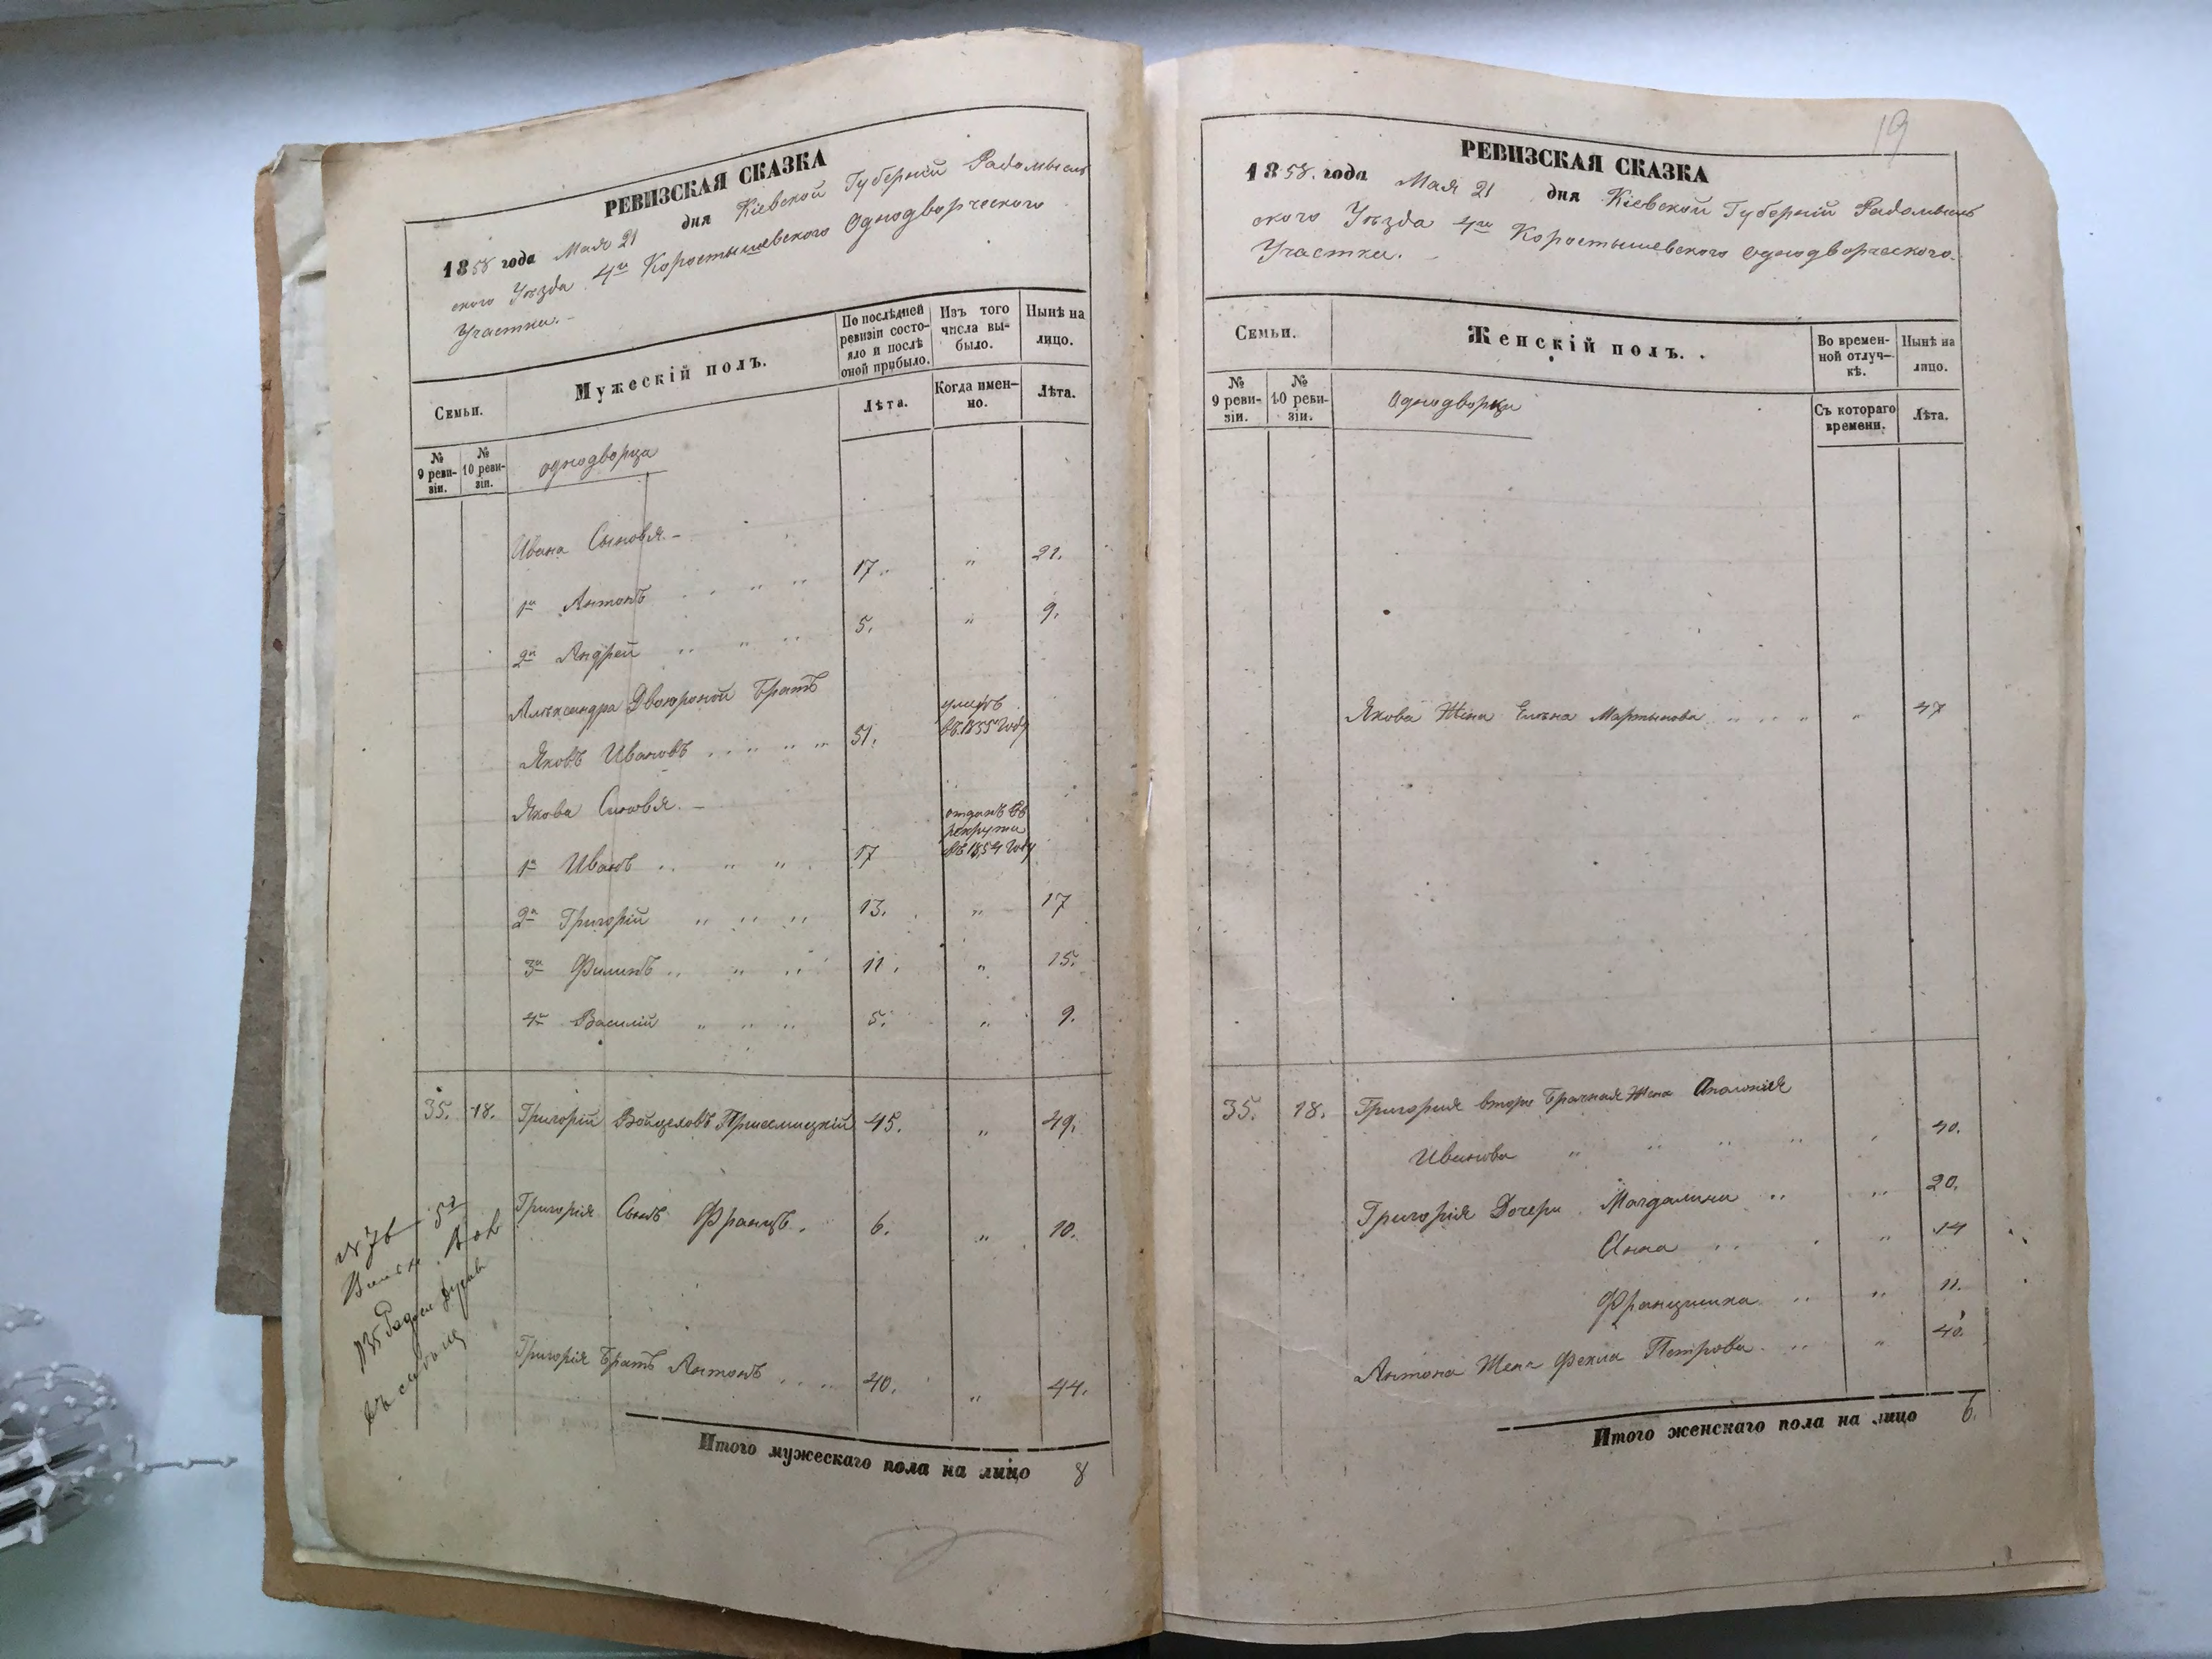 РЕВИЗСКАЯ СКАЗКА
1858 года Мая 21 дня Кіевской Губерніи Радомысль
ского Уѣзда 4го Коростышевского Однодворческого
Участка.
Семьи.
Мужескій полъ.
По послѣдней ревизіи состо-
яло и послѣ оной прибыло.
Изъ того числа вы-
было.
Нынѣ на лицо.
№ 9 реви-
зіи.
№ 10 реви-
зіи.
однодворца
Лѣта.
Когда имен-
но.
Лѣта.
Ивана Сыновья
1й Антонъ 17 " 21.
2й Андрей 5. " 9.
Александра Двоюродной Братъ
Яковъ Ивановъ 51. умеръ въ 1855 году
Якова Сыновья
1й Иванъ 17 отданъ въ рекруты въ 1854 году
2й Григорій 13. " 17
3й Филипъ 11. " 15.
4й Василій 5. " 9.
35. 18. Григорій Войцеховъ 45. " 49.
Григорія Сынъ Францъ. 6. " 10.
Григорія Братъ Антонъ 40. " 44.
Итого мужескаго пола на лицо 8
19
РЕВИЗСКАЯ СКАЗКА
1858. года Мая 21 дня Кіевской Губерніи Радомысль
ского Уѣзда 4го Коростышевского Однодворческого.
Участка.
Семьи.
Женскій полъ.
Во времен-
ной отлуч-
кѣ.
Нынѣ на лицо.
№ 9 реви-
зіи.
№ 10 реви-
зіи.
Однодворки
Съ котораго времени.
Лѣта.
Якова Жена Елена Мартынова " 47
35. 18. Григория второ Брачная Жена Аполонія
Иванова 40.
Григорія Дочери Магдалина " 20.
Анна " 14
Францишка " 11.
Антона Жена Фекла Петрова " 40.
Итого женскаго пола на лицо 6.